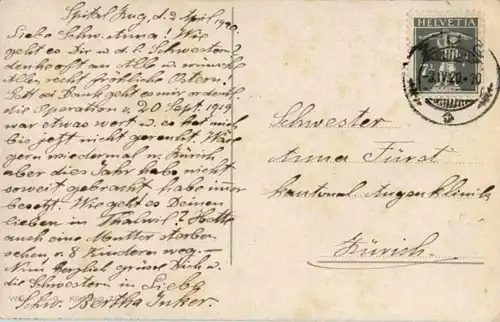 Spital Zug, d. 2 April 1920.
Liebe Schw. Anna! Wie
geht es Dir u. d. l. Schwestern?
denke oft an Alle u. wünsche
Allen recht fröhliche Ostern!
Gott sei Dank geht es mir ordentl.
die Operation v. 20 Sept. 1919
war etwas wert u. es hat mich
bis jetzt nicht gereut. Wäre
gern wiedermal n. Zürich
aber dies Jahr habe nicht
soweit gebracht habe immer
besetzt. Wie geht es Deinen
lieben in Thalwil? Hatte
auch eine Mutter sterben
sehen, v. 8 Kindern weg.—
Nun herzlich grüsse Dich u.
die Schwestern in Liebe
Schw. Bertha
HELVETIA
Schwester
Anna Fürst
kantonal Augenklinik
Zürich.